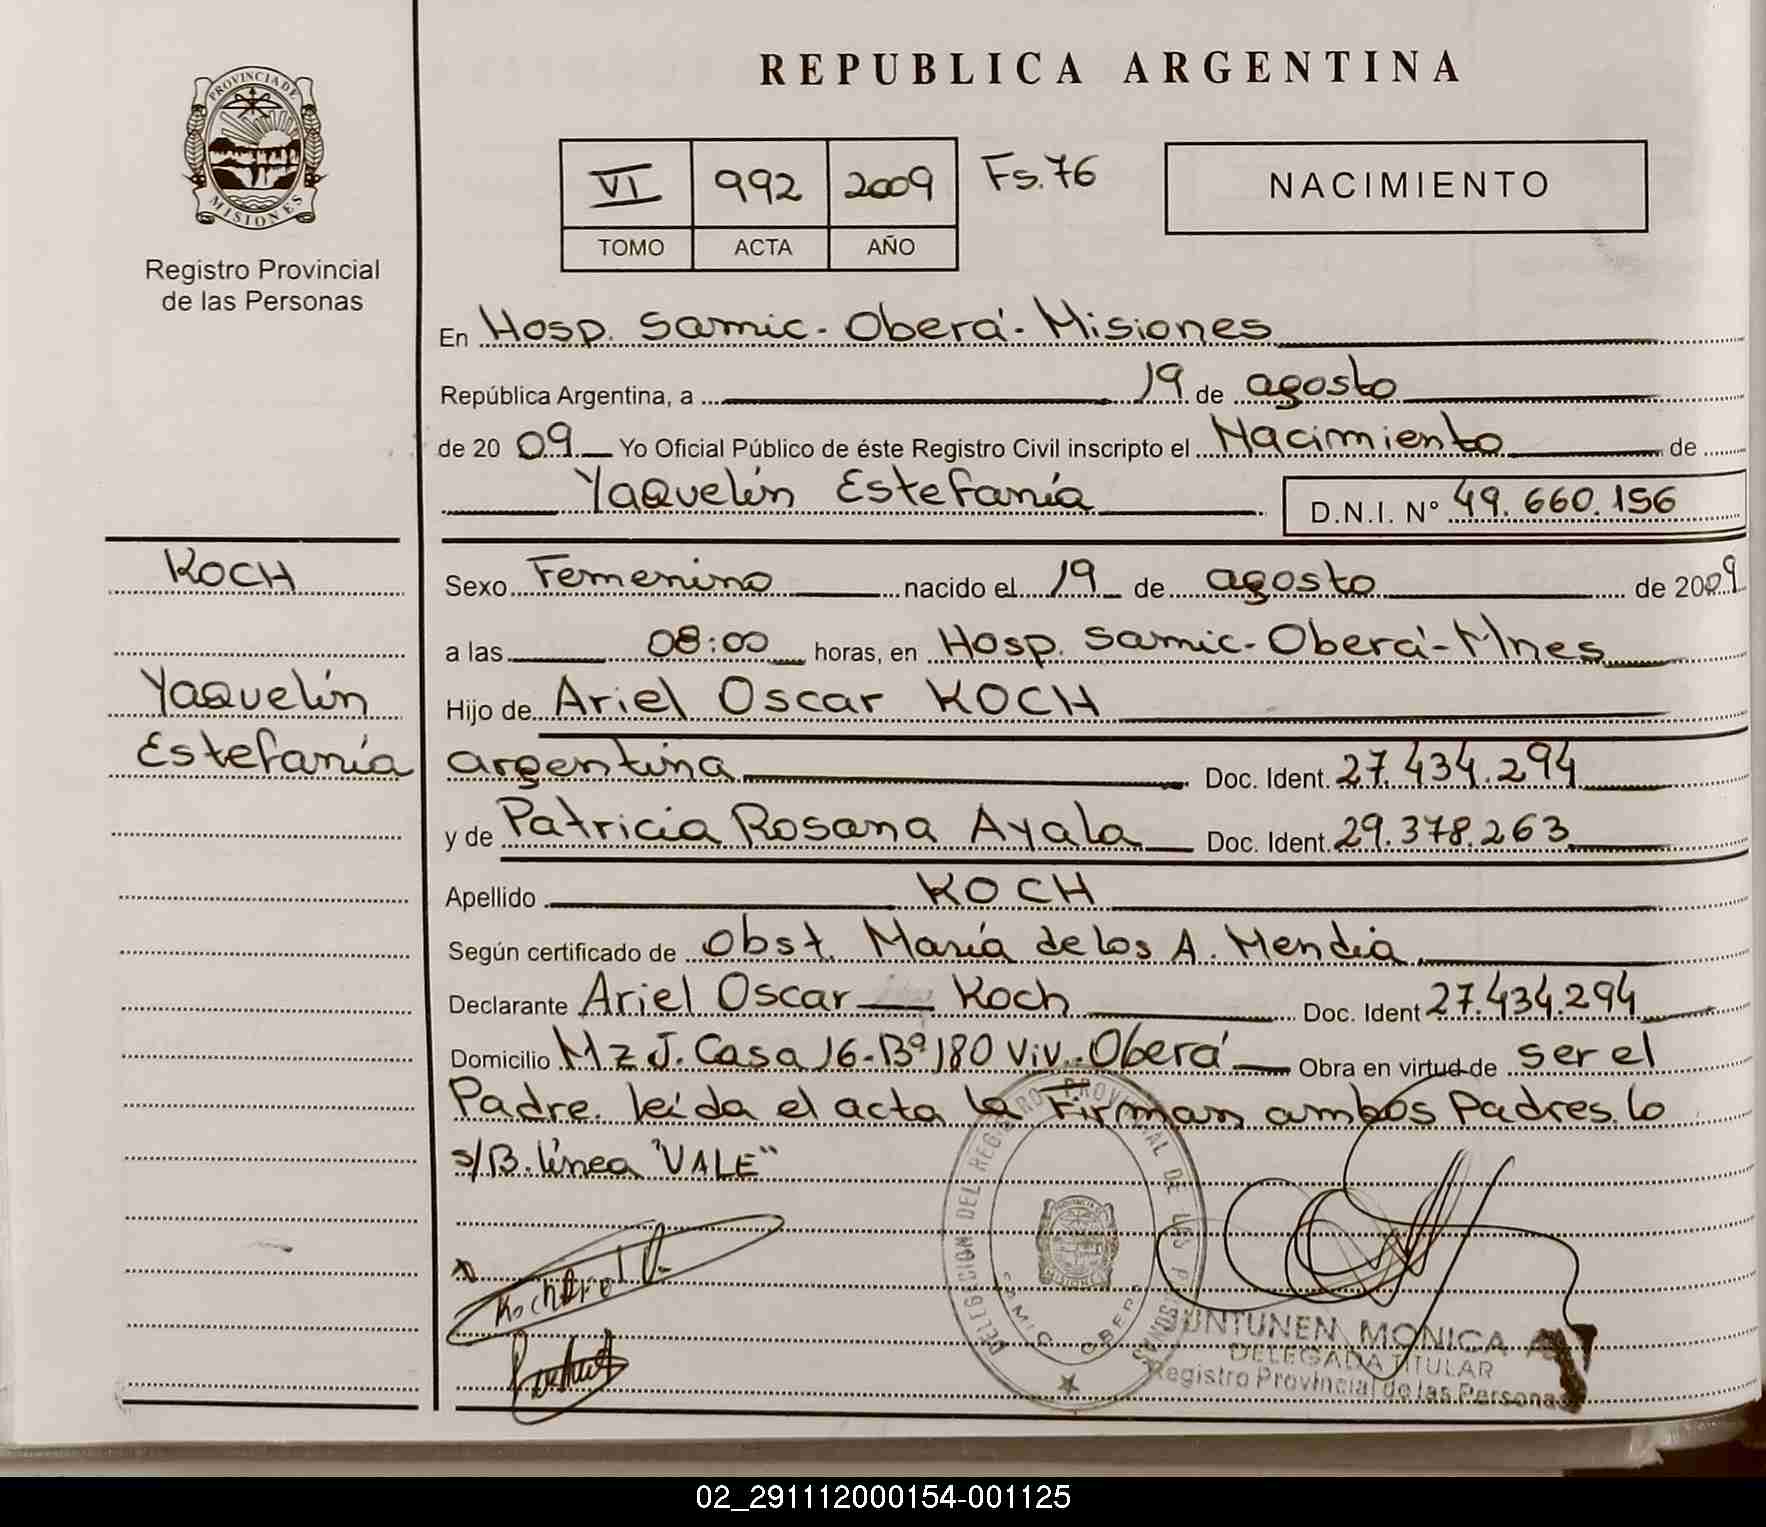 REPUBLICA ARGENTINA
PROVINCIA DE MISIONES
Registro Provincial
de las Personas
VI 992 2009 Fs. 76
TOMO ACTA AÑO
NACIMIENTO
En Hosp. Samic - Oberá - Misiones
República Argentina, a 19 de agosto
de 2009 Yo Oficial Público de éste Registro Civil inscripto el Nacimiento de
Yaquelín Estefanía D.N.I. N° 49.660.156
KOCH
Yaquelín
Estefanía
Sexo Femenino nacido el 19 de agosto de 2009
a las 08:00 horas, en Hosp. Samic - Oberá - Mnes
Hijo de Ariel Oscar KOCH
argentina Doc. Ident. 27.434.294
y de Patricia Rosana Ayala Doc. Ident. 29.378.263
Apellido KOCH
Según certificado de Obst. María de los A. Mendia
Declarante Ariel Oscar Koch Doc. Ident 27.434.294
Domicilio Mz J. Casa 16 - Bº 180 Viv. - Oberá Obra en virtud de ser el
Padre. leída el acta la Firman ambos Padres. lo
s/B. línea "VALE"
DELEGACION DEL REGISTRO PROVINCIAL DE LAS PERSONAS
MISIONES
SAMIC OBERA
Koch Ariel O.
SUNTUNEN MONICA
DELEGADA TITULAR
Registro Provincial de las Personas
02_291112000154-001125